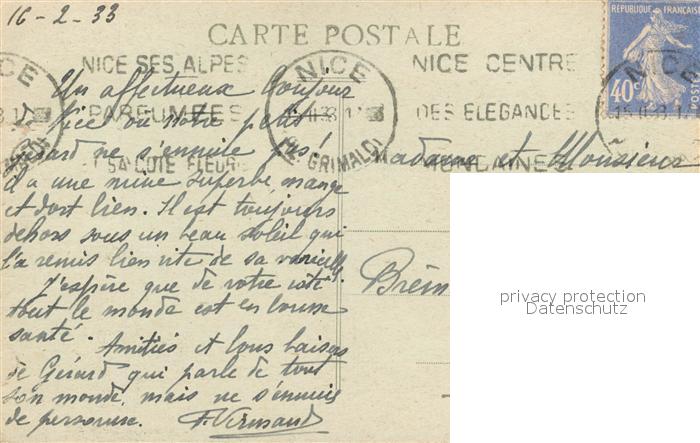 16-2-33
CARTE POSTALE
RÉPUBLIQUE FRANÇAISE
40c
POSTES
NICE SES ALPES
PARFUMÉES
SA CÔTE FLEURIE
NICE
R. GRIMALDI
NICE CENTRE
DES ELEGANCES
MONDAINES
NICE
Un affectueux bonjour
de Nice où notre petit
Gérard ne s'ennuie pas!
Il a une mine superbe, mange
et dort bien. Il est toujours
dehors sous un beau soleil qui
l'a remis bien vite de sa varicelle.
J'espère que de votre côté
tout le monde est en bonne
santé.
Amitiés et bons baisers
de Gérard qui parle de tout
son monde, mais ne s'ennuie
de personne.
Madame et Monsieur
privacy protection
Datenschutz